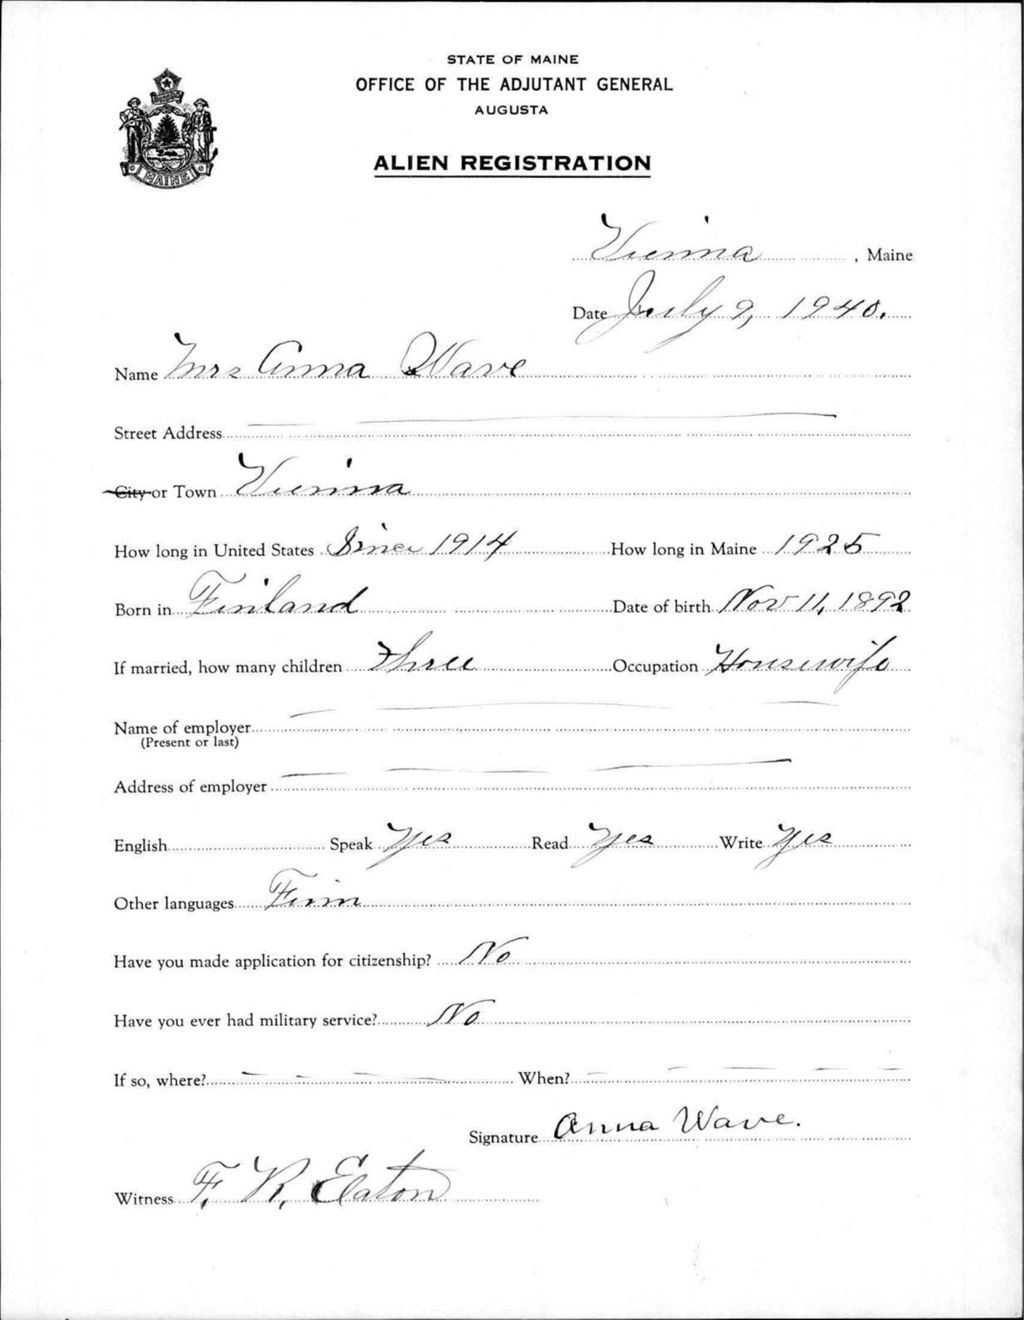 STATE OF MAINE
OFFICE OF THE ADJUTANT GENERAL
AUGUSTA
ALIEN REGISTRATION
MAINE
Vienna, Maine
Date July 9, 1940.
Name Mrs Anna Wave
Street Address
City or Town Vienna
How long in United States Since 1914 How long in Maine 1925
Born in Finland Date of birth Nov 11, 1892
If married, how many children Three Occupation Housewife
Name of employer
(Present or last)
Address of employer
English Speak Yes Read Yes Write Yes
Other languages Finn
Have you made application for citizenship? No
Have you ever had military service? No
If so, where? When?
Signature Anna Wave.
Witness F. R. Eaton